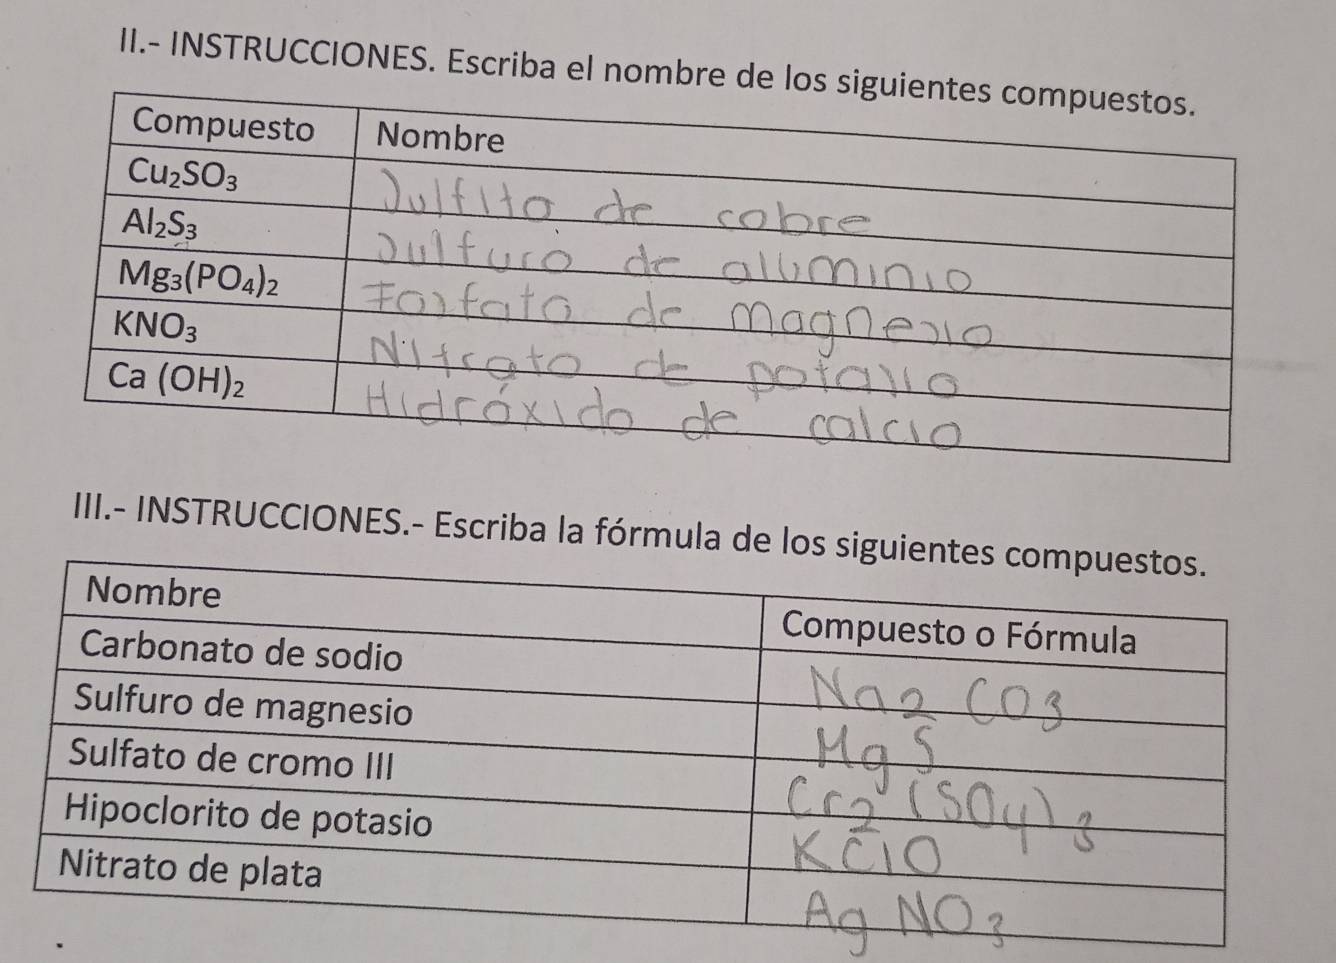 II.- INSTRUCCIONES. Escriba el nombre de los siguientes compuestos.
Compuesto Nombre
Cu₂SO₃ Sulfito de cobre
Al₂S₃ Sulfuro de alluminio
Mg₃(PO₄)₂ Fosfato de magnesio
KNO₃ Nitrato de potasio
Ca (OH)₂ Hidróxido de calcio
III.- INSTRUCCIONES.- Escriba la fórmula de los siguientes compuestos.
Nombre Compuesto o Fórmula
Carbonato de sodio Na2 CO3
Sulfuro de magnesio MgS
Sulfato de cromo III Cr2 (SO4)3
Hipoclorito de potasio KClO
Nitrato de plata Ag NO3